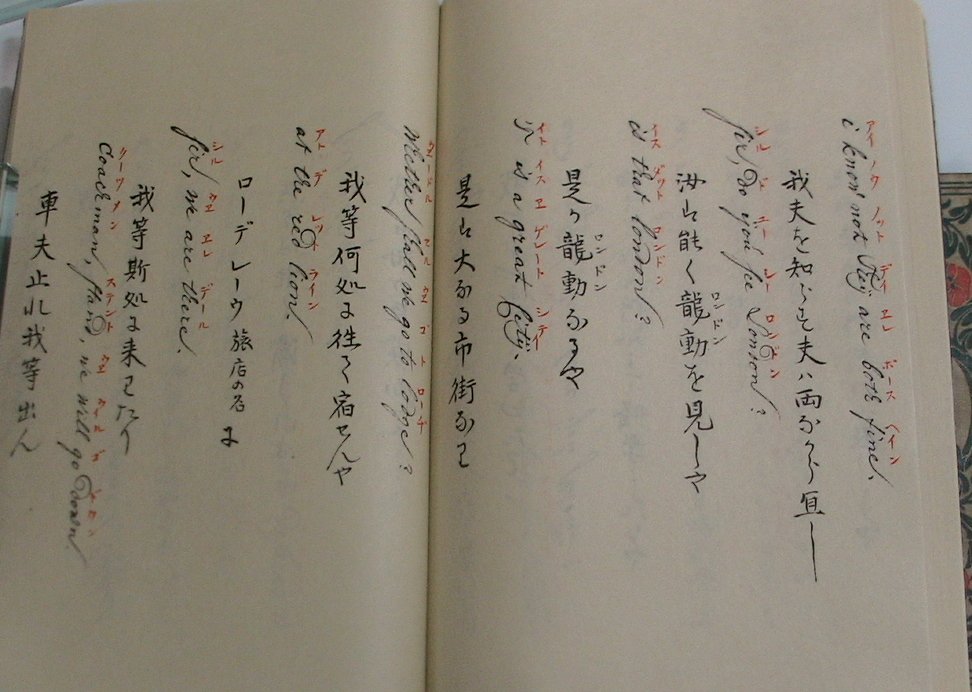 アイ ノウ ノット デイ エレ ボース ヘイン
i know not they are both fine,
我夫を知らす夫ハ両なから宜し
シル ロンドン
sir, do you see London?
ロンドン
汝は能く龍動を見しや
イス ダット ロンドン
is that london?
ロンドン
是か龍動なるや
イト イス エ ゲレート シテイ
it is a great City,
是は大なる市街なり
セル ウエ ゴ ト ローチ
Whether shall we go to lodge?
我等何処に往て宿せんや
アト デ レット ライン
at the red lion.
ローデレーウ旅店の名に
シル ウエ エレ デール
sir, we are there.
我等斯処に来りたり
クーツメン ステント ウエ ウイル ゴ ドウン
Coachman, stand, we will go down.
車夫止れ我等出ん